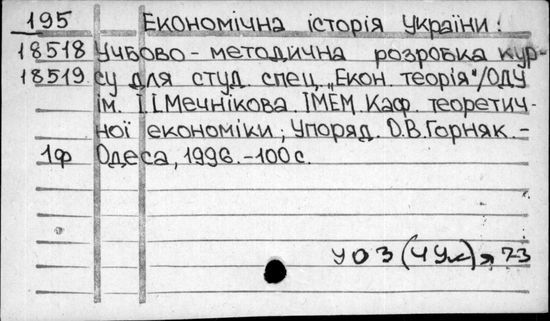 195 Економічна історія України:
18518 Учбово-методична розробка кур-
18519 су для студ. спец. „Екон. теорія"/ОДУ
ім. І.І.Мечнікова. ІМЕМ. Каф. теоретич-
ної економіки; Упоряд. О.В.Горняк.-
1ф Одеса, 1996.-100с.
У03(4Ук)я73